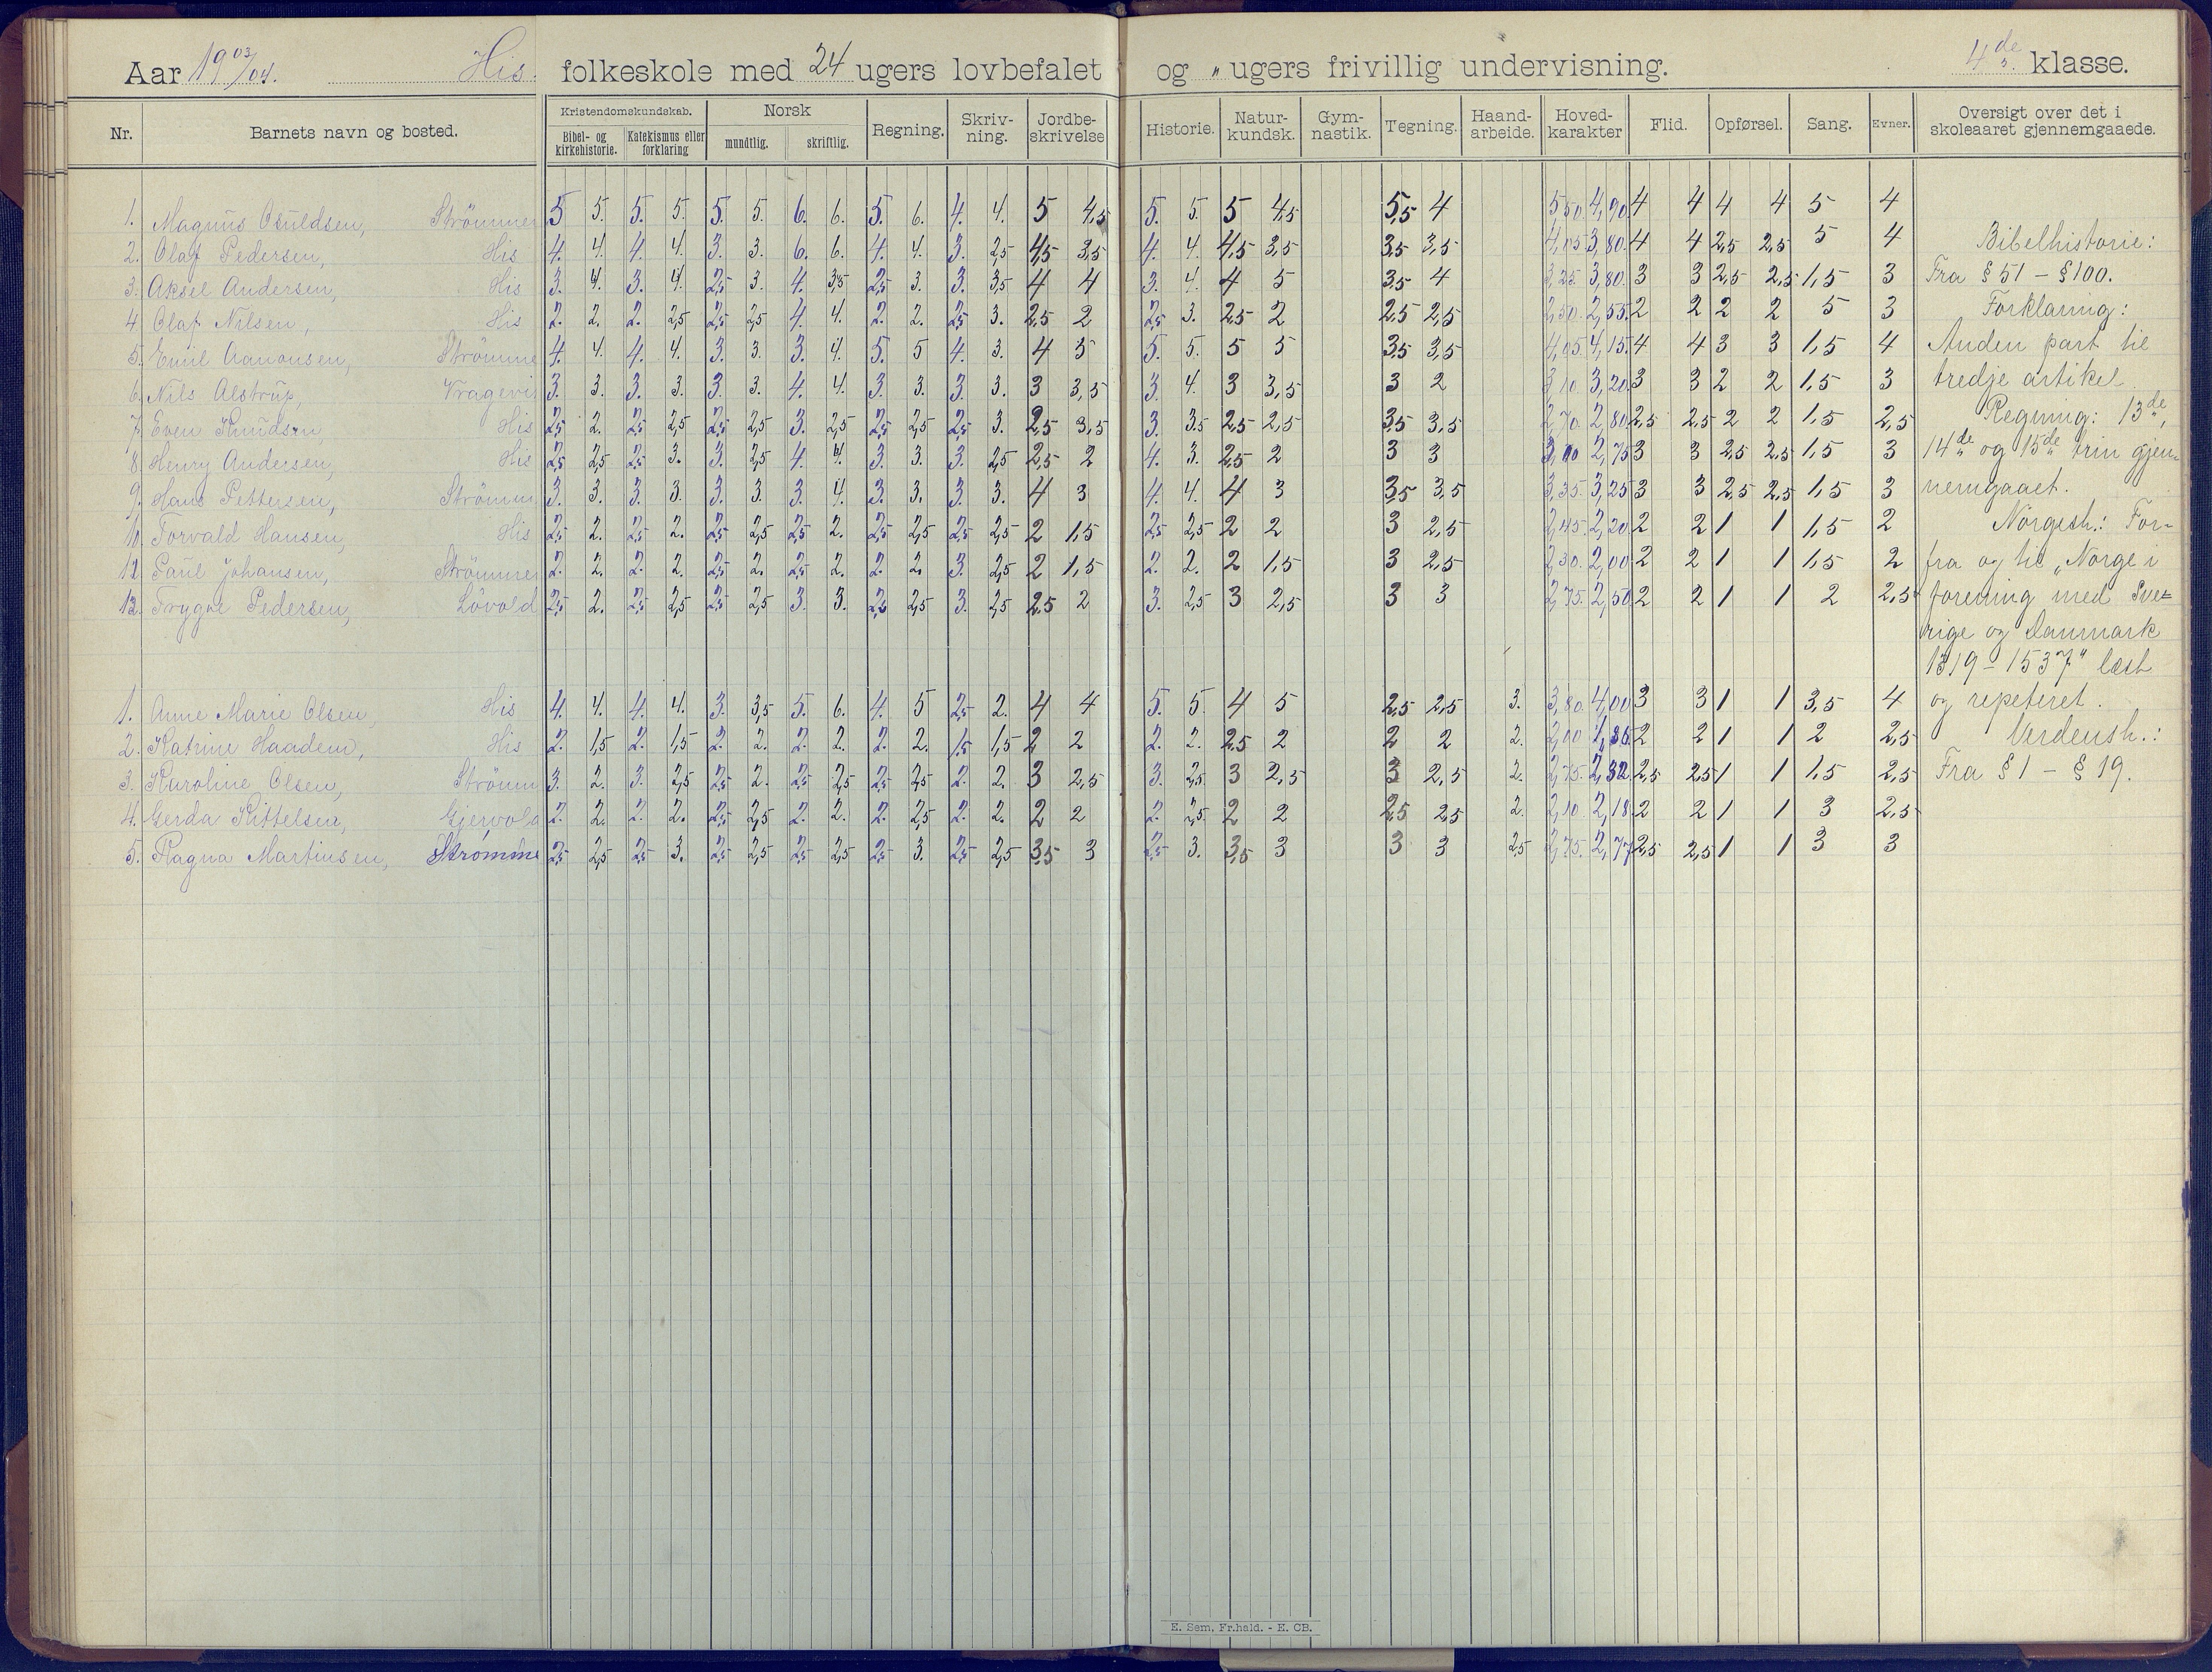 Aar 1903/04. His. folkeskole med 24 ugers lovbefalet og „ ugers frivillig undervisning. 4de klasse.
Nr. Barnets navn og bosted. Kristendomskundskab. Bibel- og kirkehistorie. Katekismus eller forklaring Norsk mundtlig. skriftlig. Regning. Skriv-ning. Jordbe-skrivelse Historie. Natur-kundsk. Gym-nastik. Tegning. Haand-arbeide. Hoved-karakter Flid. Opførsel. Sang. Evner. Oversigt over det i skoleaaret gjennemgaaede.
1. Magnus Osuldsen, Strömmen 5 5. 5. 5. 5. 5. 6. 6. 5. 6. 4. 4. 5 4,5 5. 5. 5 4,5 5,5 4 5,50. 4,90. 4 4 4 4 5 4
2. Olaf Pedersen, His 4. 4. 4. 4. 3. 3. 6. 6. 4. 4. 3. 2,5 4,5 3,5 4. 4. 4,5 3,5 3,5 3,5 4,05. 3,80. 4 4 2,5 2,5 5 4 Bibelhistorie:
3. Aksel Andersen, His 3. 4. 3. 4. 2,5 3. 4. 3,5 2,5 3. 3. 3,5 4 4 3. 4. 4 5 3,5 4 3,35. 3,80. 3 3 2,5 2,5 1,5 3 Fra § 51 – § 100.
4 Olaf Nilsen, His 2. 2. 2. 2,5 2,5 2,5 4. 4. 2. 2. 2,5 3. 2,5 2 2,5 3. 2,5 2 2,5 2,5 2,50. 2,55. 2 2 2 2 5 3 Forklaring:
5. Emil Aanonsen, Strömme 4. 4. 4. 4. 3. 3. 3. 4. 5. 5 4. 3. 4 5 5. 5. 5 5 3,5 3,5 4,05. 4,15. 4 4 3 3 1,5 4 Anden part til
6. Nils Alstrup, Vragevi 3. 3. 3. 3. 3. 3. 4. 4. 3. 3. 3. 3. 3 3,5 3. 4. 3 3,5 3 2 3,10 3,20 3 3 2 2 1,5 3 tredje artikel.
7. Even Knudsen, His 2,5 2. 2,5 2,5 2,5 2,5 3. 2,5 2,5 2,5 2,5 3. 2,5 3,5 3. 3,5 2,5 2,5 3,5 3,5 2,70 2,80 2,5 2,5 2 2 1,5 2,5 Regning: 13de,
8. Henry Andersen, His 2,5 2,5 2,5 3. 3. 2,5 4. 4. 3. 3. 3. 2,5 2,5 2 4. 3. 2,5 2 3 3 3,00 2,75 3 3 2,5 2,5 1,5 3 14de og 15de trin gjen-
9. Hans Pettersen, Strömm 3. 3. 3. 3. 3. 3. 3. 4. 3. 3. 3. 3. 4 3 4. 4. 4 3 3,5 3,5 3,35. 3,25 3 3 2,5 2,5 1,5 3 nemgaaet.
10. Torvald Hansen, His 2,5 2. 2,5 2. 2,5 2,5 2,5 2. 2,5 2,5 2,5 2,5 2 1,5 2,5 2,5 2 2 3 2,5 2,45. 2,20 2 2 1 1 1,5 2 Norgesh.: For-
11. Paul Johansen, Strömmen 2. 2. 2. 2. 2,5 2. 2,5 2. 2. 2. 3. 2,5 2 1,5 2. 2. 2 1,5 3 2,5 2,30. 2,00 2 2 1 1 1,5 2 fra og til „Norge i
12. Trygve Pedersen, Lövold 2,5 2. 2,5 2,5 2,5 2,5 3. 3. 2,5 2,5 3. 2,5 2,5 2 3. 2,5 3 2,5 3 3 2,75. 2,50 2 2 1 1 2 2,5 forening med Sve-
rige og Danmark
1319 – 1537" læst
1. Anne Marie Olsen, His 4. 4. 4. 4. 3. 3,5 5. 6. 4. 5 2,5 2. 4 4 5. 5. 4 5 2,5 2,5 3. 3,80. 4,00 3 3 1 1 3,5 4 og repeteret.
2. Katrine Haadem, His 2. 1,5 2. 1,5 2. 2. 2. 2. 2. 2. 1,5 1,5 2 2 2. 2. 2,5 2 2 2 2. 2,00 1,86 2 2 1 1 2 2,5 Verdensh.:
3. Karoline Olsen, Strömm 3. 2. 3. 2,5 2,5 2. 2,5 2,5 2,5 2,5 2. 2. 3 2,5 3. 2,5 3 2,5 3 2,5 2. 2,75. 2,32 2,5 2,5 1 1 1,5 2,5 Fra § 1 – § 19.
4. Gerda Kittelsen, Gjervold 2. 2. 2. 2. 2,5 2,5 2. 2. 2. 2,5 2. 2. 2 2 2. 2,5 2 2 2,5 2,5 2. 2,10 2,18 2 2 1 1 3 2,5
5. Ragna Martinsen, Strömme 2,5 2,5 2,5 3. 2,5 2,5 2,5 2,5 2,5 3. 2,5 2,5 3,5 3 2,5 3. 3,5 3 3 3 2,5 2,75. 2,77 2,5 2,5 1 1 3 3
E. Sem, Fr.hald. - E. CB.